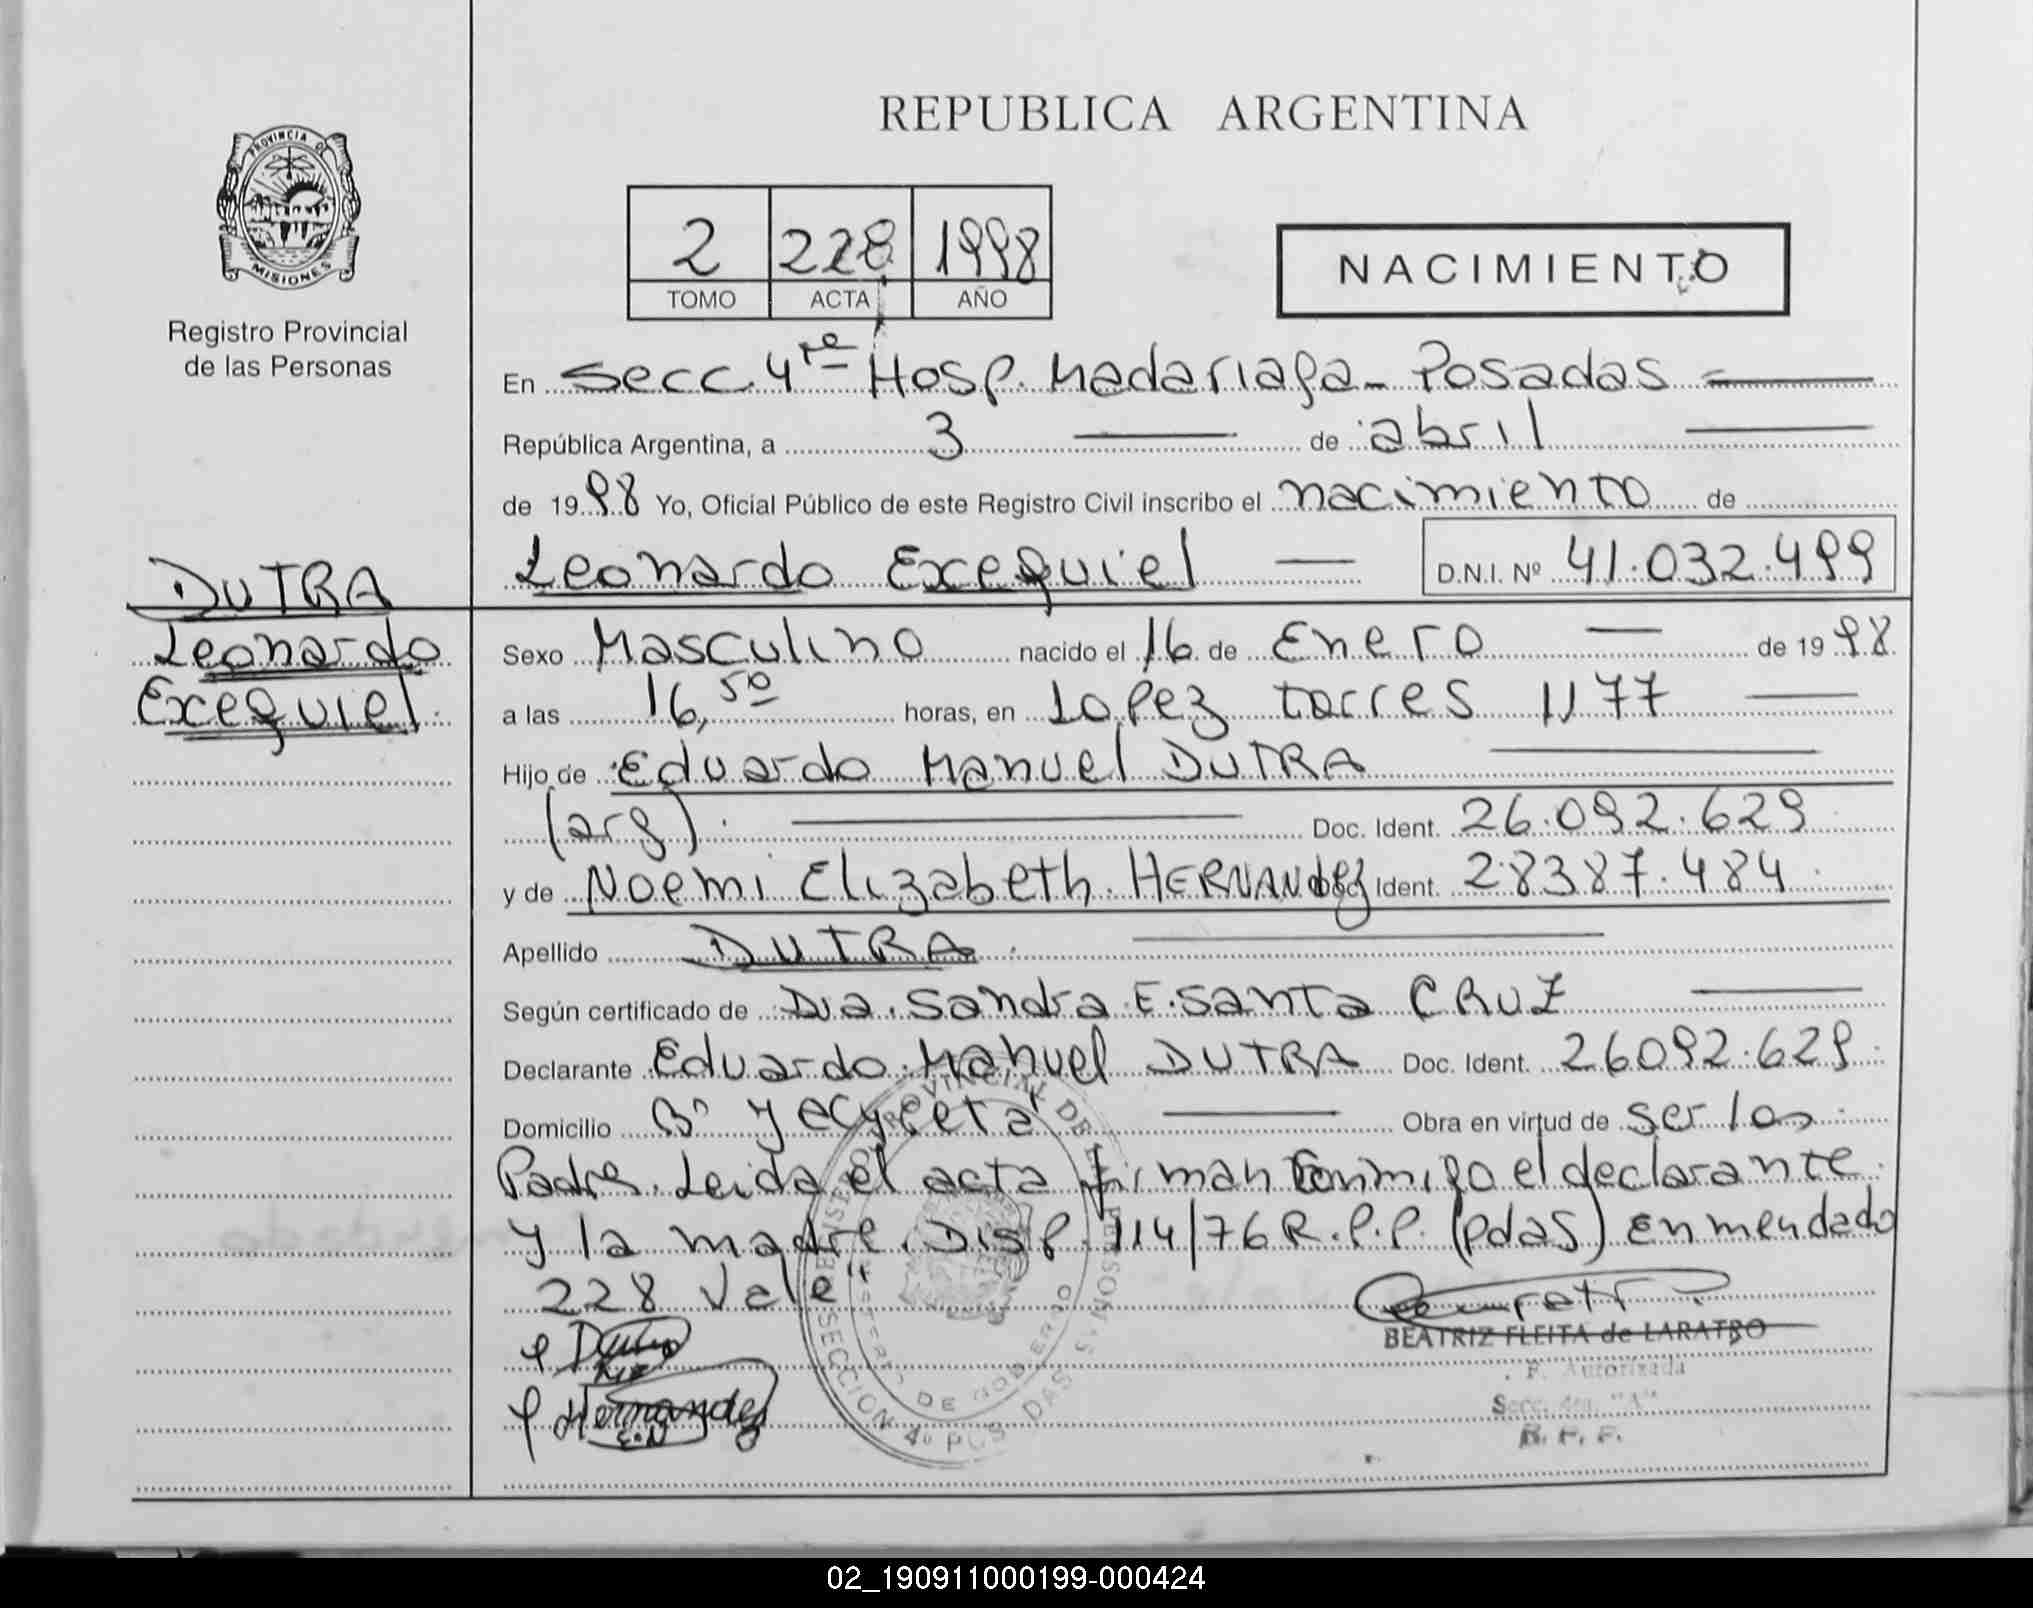 REPUBLICA ARGENTINA
PROVINCIA DE
MISIONES
Registro Provincial
de las Personas
2 228 1998
TOMO ACTA AÑO
NACIMIENTO
En Secc. 4ta Hosp. Madariaga - Posadas
República Argentina, a 3 de abril
de 1998 Yo, Oficial Público de este Registro Civil inscribo el nacimiento de
Leonardo Exequiel D.N.I. Nº 41.032.499
DUTRA
Leonardo
Exequiel
Sexo Masculino nacido el 16 de Enero de 1998
a las 16,50 horas, en Lopez torres 1177
Hijo de Eduardo Manuel DUTRA
(arg). Doc. Ident. 26.092.629
y de Noemi Elizabeth HERNANdez Doc. Ident. 28387.484
Apellido DUTRA
Según certificado de Dra. Sandra E. Santa CRUZ
Declarante Eduardo Manuel DUTRA Doc. Ident. 26092.629
Domicilio Bº Yacyreta Obra en virtud de ser los
Padres. Leida el acta firman Conmigo el declarante
y la madre. Disp. 114/76 R.P.P. (pdas) Enmendado
228 Vale"
Hernandez
BEATRIZ FLEITA de LARATRO
F. Autorizada
Secc. 4ta. "A"
R. P. P.
SECCION 4º POSADAS
02_190911000199-000424